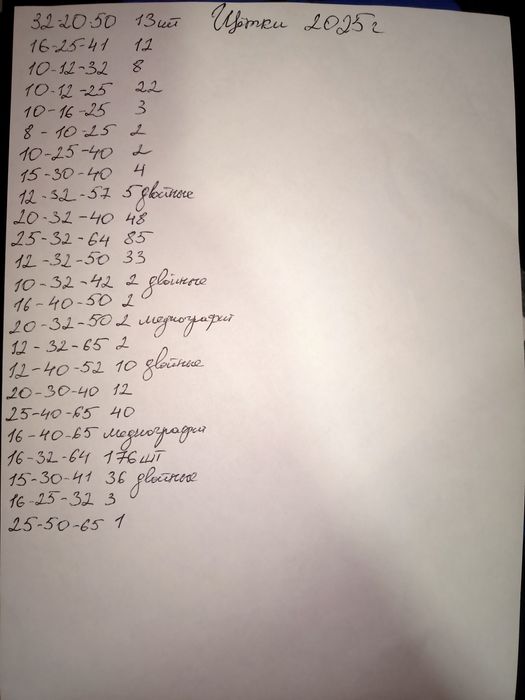 32-20-50 13шт Щётки 2025г
16-25-41 12
10-12-32 8
10-12-25 22
10-16-25 3
8-10-25 2
10-25-40 2
15-30-40 4
12-32-57 5 двойные
20-32-40 48
25-32-64 85
12-32-50 33
10-32-42 2 двойные
16-40-50 2
20-32-50 2 меднографит
12-32-65 2
12-40-52 10 двойные
20-30-40 12
25-40-65 40
16-40-65 меднографит
16-32-64 176шт
15-30-41 36 двойные
16-25-32 3
25-50-65 1